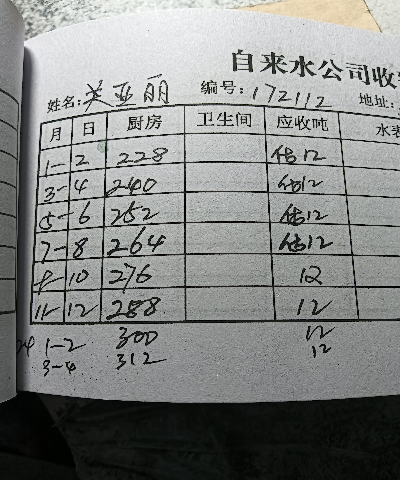 自来水公司收
姓名: 关亚丽 编号: 172112 地址:
月 日 厨房 卫生间 应收吨 水表
1-2 228 估12
3-4 240 估12
5-6 252 估12
7-8 264 估12
9-10 276 12
11-12 288 12
24 1-2 300 12
3-4 312 12